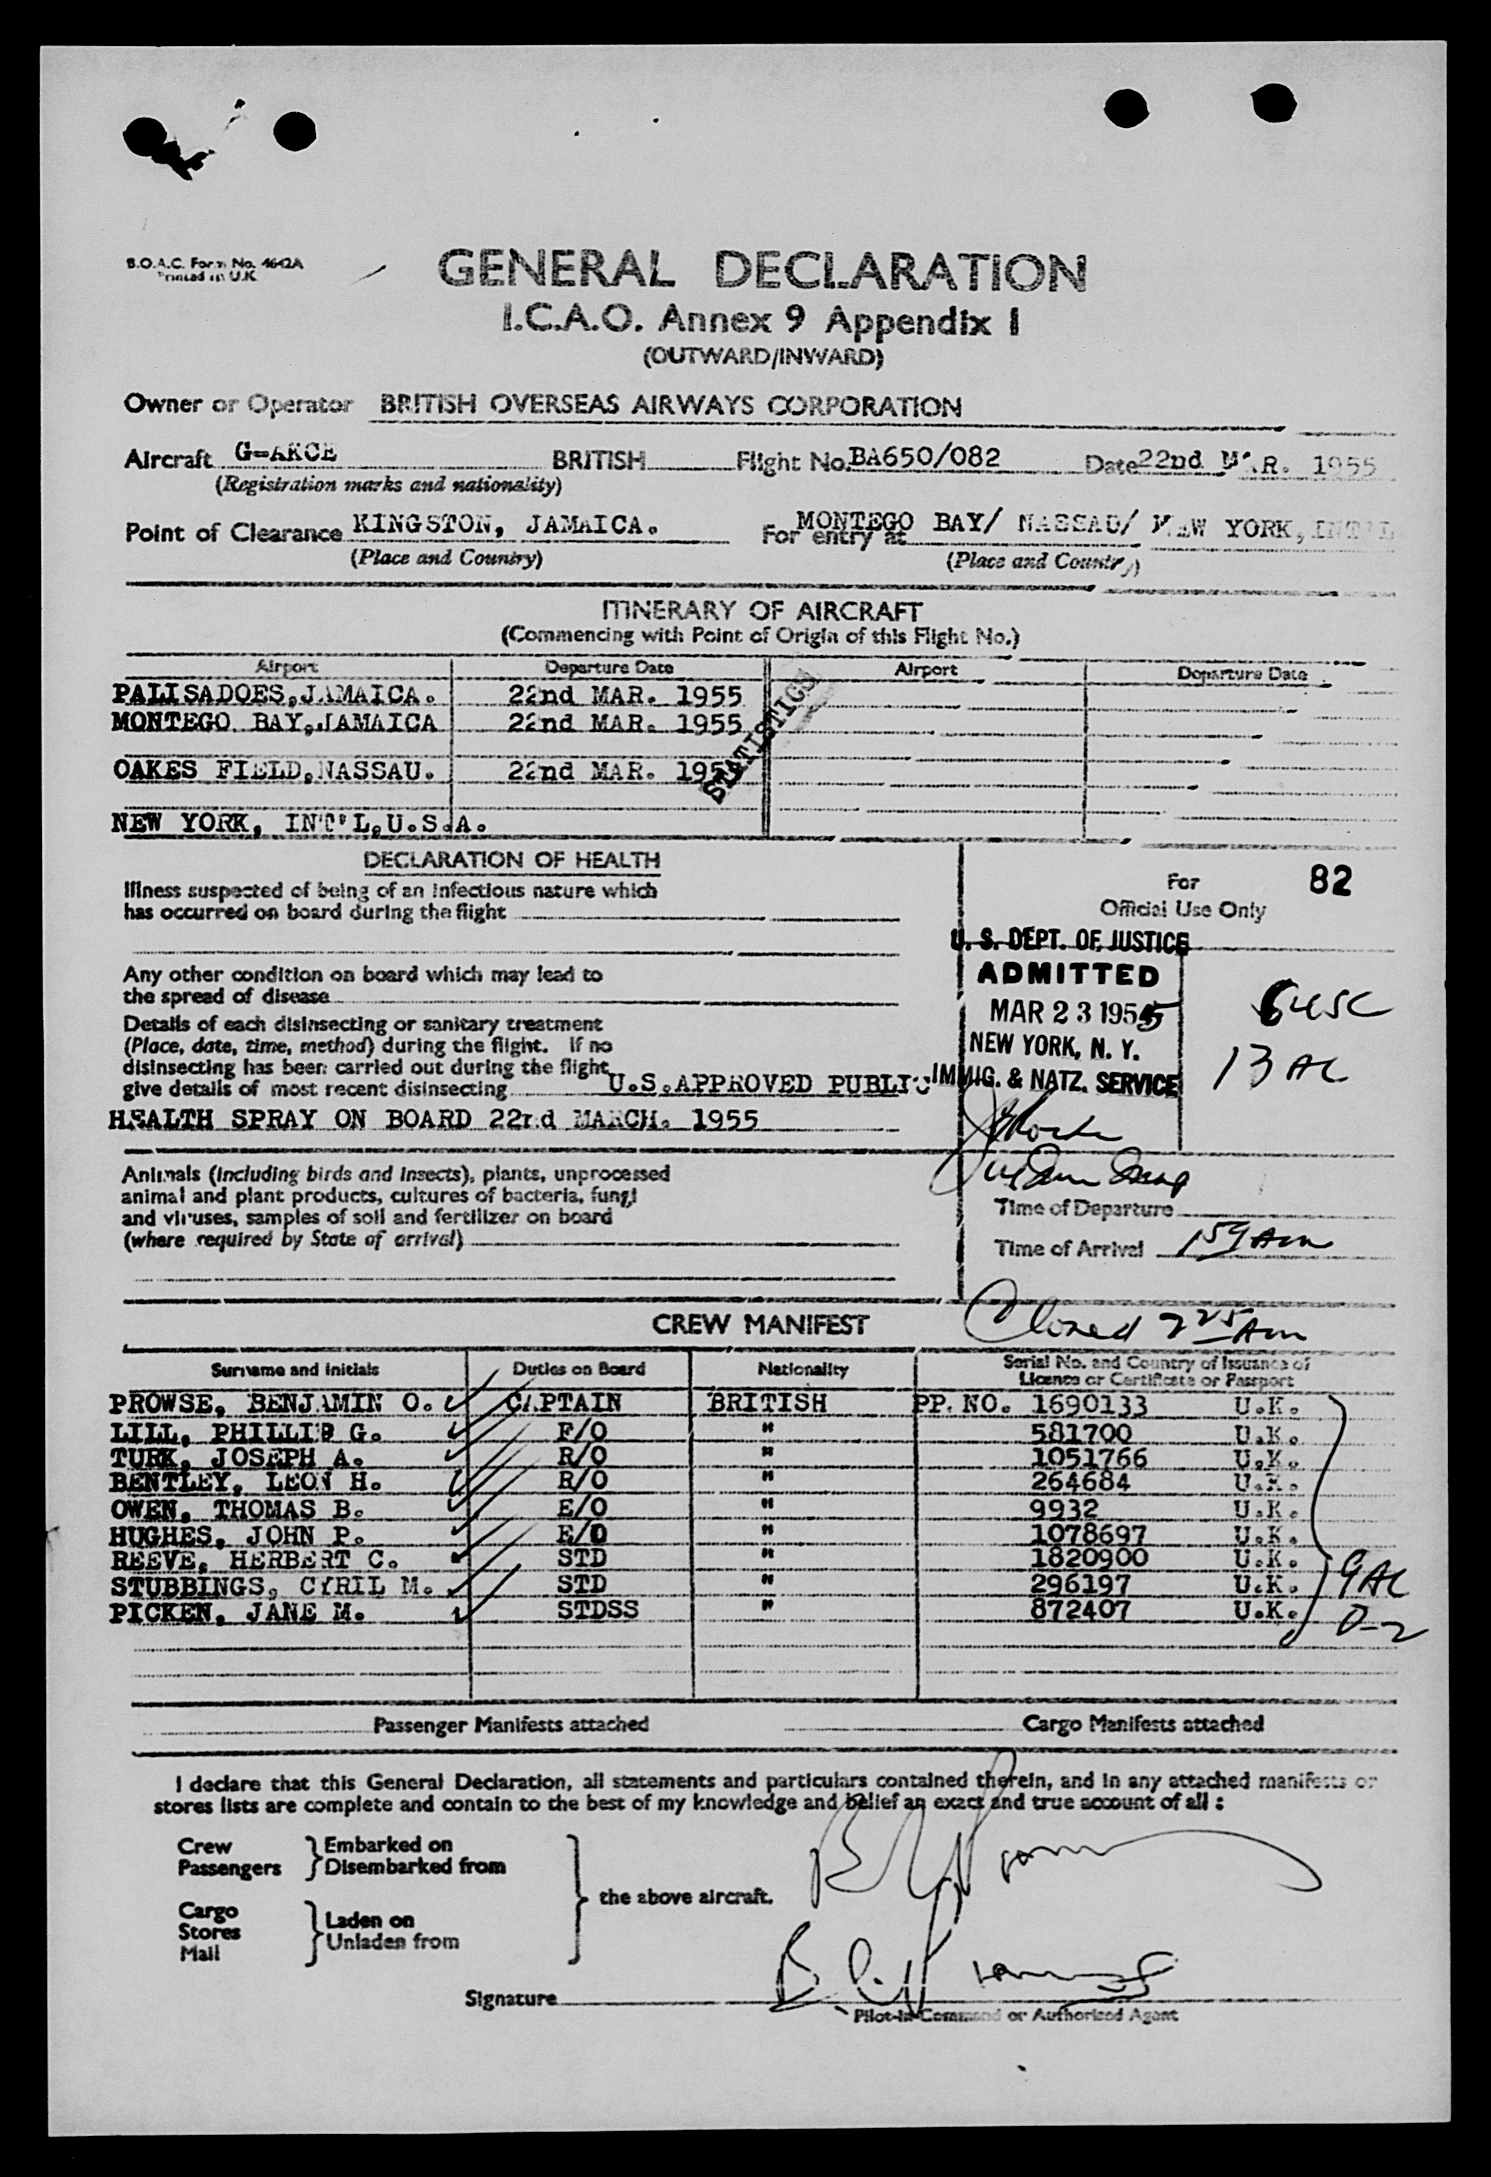 B.O.A.C. Form No. 4642A
Printed in U.K.
GENERAL DECLARATION
I.C.A.O. Annex 9 Appendix I
(OUTWARD/INWARD)
Owner or Operator BRITISH OVERSEAS AIRWAYS CORPORATION
Aircraft BRITISH Flight No. BA650/082 Date 22nd MAR. 1955
(Registration marks and nationality)
Point of Clearance KINGSTON, JAMAICA. For entry at MONTEGO BAY/ NASSAU/ NEW YORK, INT'L
(Place and Country) (Place and Country)
ITINERARY OF AIRCRAFT
(Commencing with Point of Origin of this Flight No.)
Airport Departure Date Airport Departure Date
PALISADOES, JAMAICA. 22nd MAR. 1955
MONTEGO BAY, JAMAICA 22nd MAR. 1955
STATISTICS
OAKES FIELD, NASSAU. 22nd MAR. 1955
NEW YORK, INT'L, U.S.A.
DECLARATION OF HEALTH
Illness suspected of being of an infectious nature which
has occurred on board during the flight
Any other condition on board which may lead to
the spread of disease
Details of each disinsecting or sanitary treatment
(Place, date, time, method) during the flight. If no
disinsecting has been carried out during the flight
give details of most recent disinsecting U.S. APPROVED PUBLIC
HEALTH SPRAY ON BOARD 22nd MARCH. 1955
Animals (including birds and insects), plants, unprocessed
animal and plant products, cultures of bacteria, fungi
and viruses, samples of soil and fertilizer on board
(where required by State of arrival)
For 82
Official Use Only
U. S. DEPT. OF JUSTICE
ADMITTED
MAR 23 1955
NEW YORK, N. Y.
IMMIG. & NATZ. SERVICE
13 AL
Time of Departure
Time of Arrival 159 Am
Closed 225 Am
CREW MANIFEST
Surname and initials Duties on Board Nationality Serial No. and Country of Issuance of
Licence or Certificate or Passport
PROWSE, BENJAMIN O. CAPTAIN BRITISH PP. NO. 1690133 U.K.
LILL, PHILLIP G. F/O " 581700 U.K.
TURK, JOSEPH A. R/O " 1051766 U.K.
BENTLEY, LEON H. R/O " 264684 U.K.
OWEN, THOMAS B. E/O " 9932 U.K.
HUGHES, JOHN P. E/O " 1078697 U.K.
REEVE, HERBERT C. STD " 1820900 U.K.
STUBBINGS, CYRIL M. STD " 296197 U.K. 9 AL
PICKEN, JANE M. STDSS " 872407 U.K. D-2
Passenger Manifests attached Cargo Manifests attached
I declare that this General Declaration, all statements and particulars contained therein, and in any attached manifests or
stores lists are complete and contain to the best of my knowledge and belief an exact and true account of all :
Crew Embarked on
Passengers Disembarked from
the above aircraft.
Cargo
Stores Laden on
Mail Unladen from
Signature
Pilot-in-Command or Authorised Agent